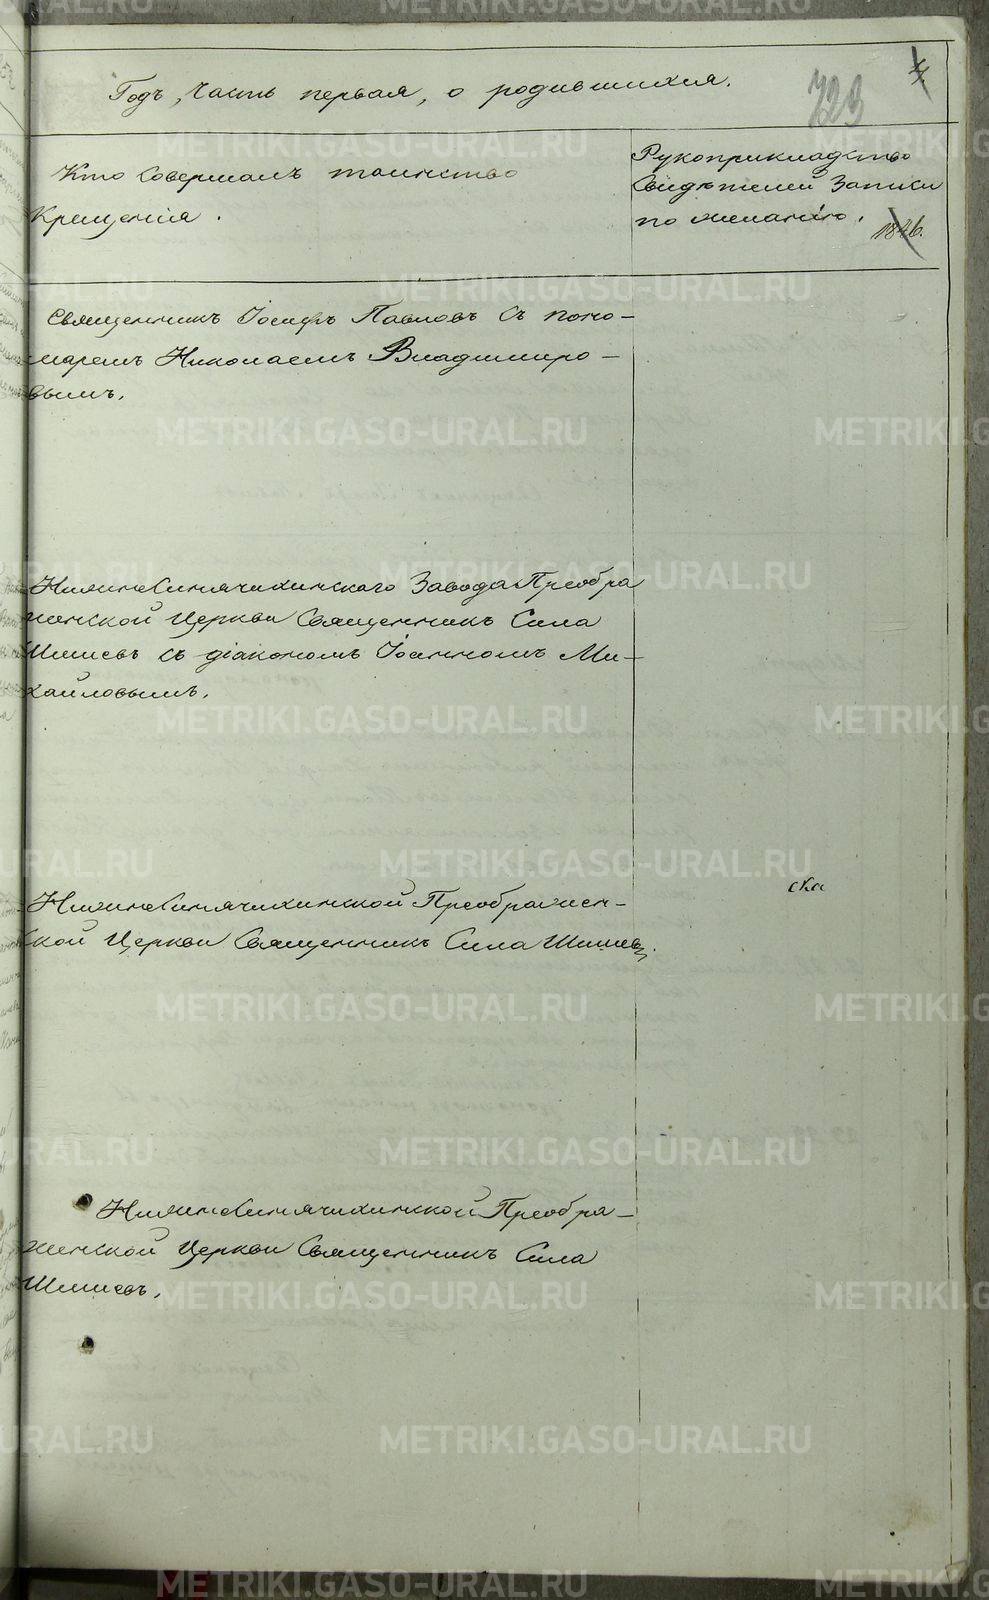 Годъ, Часть первая, о родившихся.
723
Кто Совершалъ таинство
Крещенія.
Рукоприкладство
Свидѣтелей Записи
по желанію.
1846.
Священникъ Іосифъ Павловъ Съ поно-
маремъ Николаемъ Владимиро-
вымъ.
НижнеСинячихинскаго Завода Преобра
женской Церкви Священникъ Сила
Шишевъ съ діакономъ Іоанномъ Ми-
хайловымъ.
НижнеСинячихинской Преображен-
ской Церкви Священникъ Сила Шишевъ.
НижнеСинячихинской Преобра-
женской Церкви Священникъ Сила
Шишевъ.
METRIKI.GASO-URAL.RU